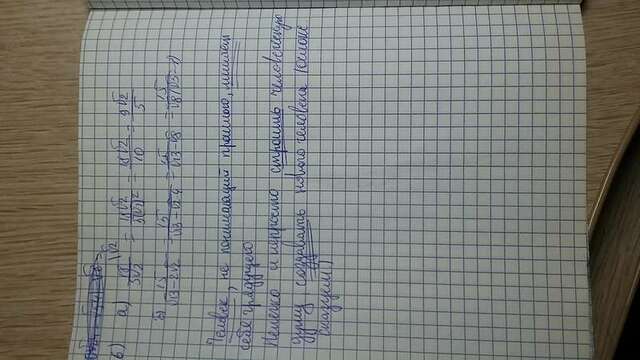 6) а) 18/5√2 = 18√2/5(√2)² = 18√2/10 = 9√2/5
б) 15/√13-2√2 = 15/√13-√2·4 = 15/√13-√8 = 15/
Человек, не понимающий прошлого, лишает
себя грядущего
Нелегко и непросто строить человеческую
душу создавать нового человека
сказуем.)